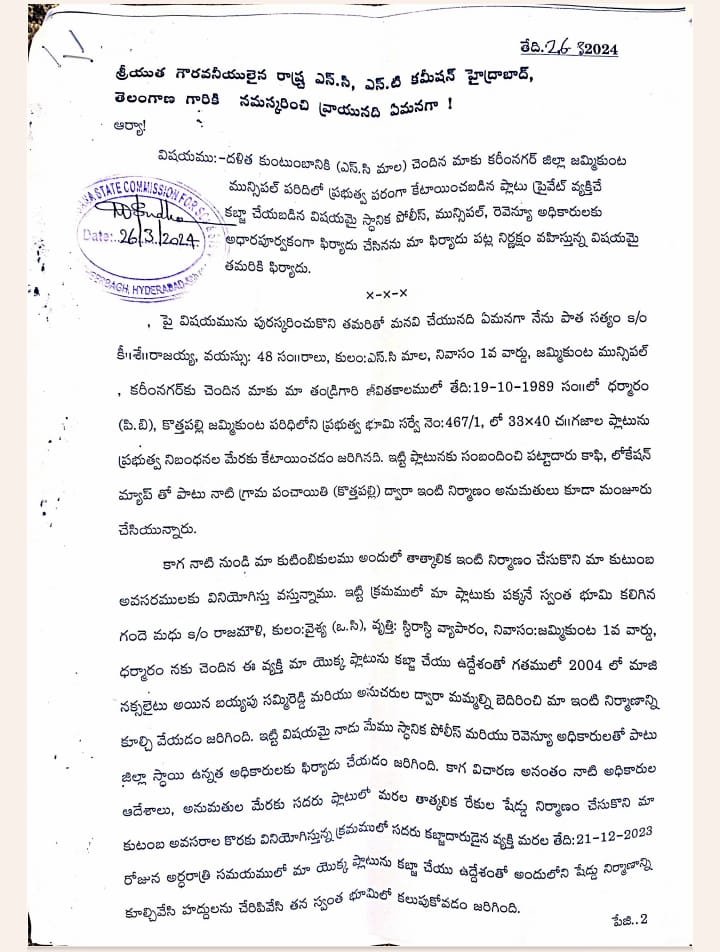 తేది.26 3 2024
శ్రీయుత గౌరవనీయులైన రాష్ట్ర ఎస్.సి, ఎస్.టి కమీషన్ హైద్రాబాద్,
తెలంగాణ గారికి నమస్కరించి వ్రాయునది ఏమనగా !
ఆర్యా!
విషయము:-దళిత కుంటుంబానికి (ఎస్.సి మాల) చెందిన మాకు కరీంనగర్ జిల్లా జమ్మికుంట
మున్సిపల్ పరిదిలో ప్రభుత్వ పరంగా కేటాయించబడిన ప్లాటు ప్రైవేట్ వ్యక్తిచే
కబ్జా చేయబడిన విషయమై స్థానిక పోలీస్, మున్సిపల్, రెవెన్యూ అధికారులకు
అధారపూర్వకంగా ఫిర్యాదు చేసినను మా ఫిర్యాదు పట్ల నిర్లక్షం వహిస్తున్న విషయమై
తమరికి ఫిర్యాదు.
STATE COMMISSION FOR
Date:..26/3/2024
HYDERABAD
x-x-x
, పై విషయమును పురస్కరించుకొని తమరితో మనవి చేయునది ఏమనగా నేను పాత సత్యం s/o
కీ॥శే॥రాజయ్య, వయస్సు: 48 సం॥రాలు, కులం:ఎస్.సి మాల, నివాసం 1వ వార్డు, జమ్మికుంట మున్సిపల్
, కరీంనగర్‌కు చెందిన మాకు మా తండ్రిగారి జీవితకాలములో తేది:19-10-1989 సం॥లో ధర్మారం
(పి.బి), కొత్తపల్లి జమ్మికుంట పరిధిలోని ప్రభుత్వ భూమి సర్వే నెం:467/1, లో 33×40 చ॥గజాల ప్లాటును
ప్రభుత్వ నిబంధనల మేరకు కేటాయించడం జరిగినది. ఇట్టి ప్లాటునకు సంబందించి పట్టాదారు కాఫి, లోకేషన్
మ్యాప్ తో పాటు నాటి గ్రామ పంచాయితి (కొత్తపల్లి) ద్వారా ఇంటి నిర్మాణం అనుమతులు కూడా మంజూరు
చేసియున్నారు.
కాగ నాటి నుండి మా కుటింబికులము అందులో తాత్కాలిక ఇంటి నిర్మాణం చేసుకొని మా కుటుంబ
అవసరములకు వినియోగిస్తు వస్తున్నాము. ఇట్టి క్రమములో మా ప్లాటుకు పక్కనే స్వంత భూమి కలిగిన
గందె మధు s/o రాజమౌళి, కులం:వైశ్య (ఒ.సి), వృత్తి: స్థిరాస్థి వ్యాపారం, నివాసం:జమ్మికుంట 1వ వార్డు,
ధర్మారం నకు చెందిన ఈ వ్యక్తి మా యొక్క ప్లాటును కబ్జా చేయు ఉద్దేశంతో గతములో 2004 లో మాజి
నక్సలైటు అయిన బయ్యపు సమ్మిరెడ్డి మరియు అనుచరుల ద్వారా మమ్మల్ని బెదిరించి మా ఇంటి నిర్మాణాన్ని
కూల్చి వేయడం జరిగింది. ఇట్టి విషయమై నాడు మేము స్థానిక పోలీస్ మరియు రెవెన్యూ అధికారులతో పాటు
జిల్లా స్థాయి ఉన్నత అధికారులకు ఫిర్యాదు చేయడం జరిగింది. కాగ విచారణ అనంతం నాటి అధికారుల
ఆదేశాలు, అనుమతుల మేరకు సదరు ప్లాటులో మరల తాత్కలిక రేకుల షేడ్డు నిర్మాణం చేసుకొని మా
కుటంబ అవసరాల కొరకు వినియోగిస్తున్న క్రమములో సదరు కబ్జాదారుడైన వ్యక్తి మరల తేది:21-12-2023
రోజున అర్ధరాత్రి సమయములో మా యొక్క ప్లాటును కబ్జా చేయు ఉద్దేశంతో అందులోని షేడ్డు నిర్మాణాన్ని
కూల్చివేసి హద్దులను చేరిపివేసి తన స్వంత భూమిలో కలుపుకోవడం జరిగింది.
పేజి..2